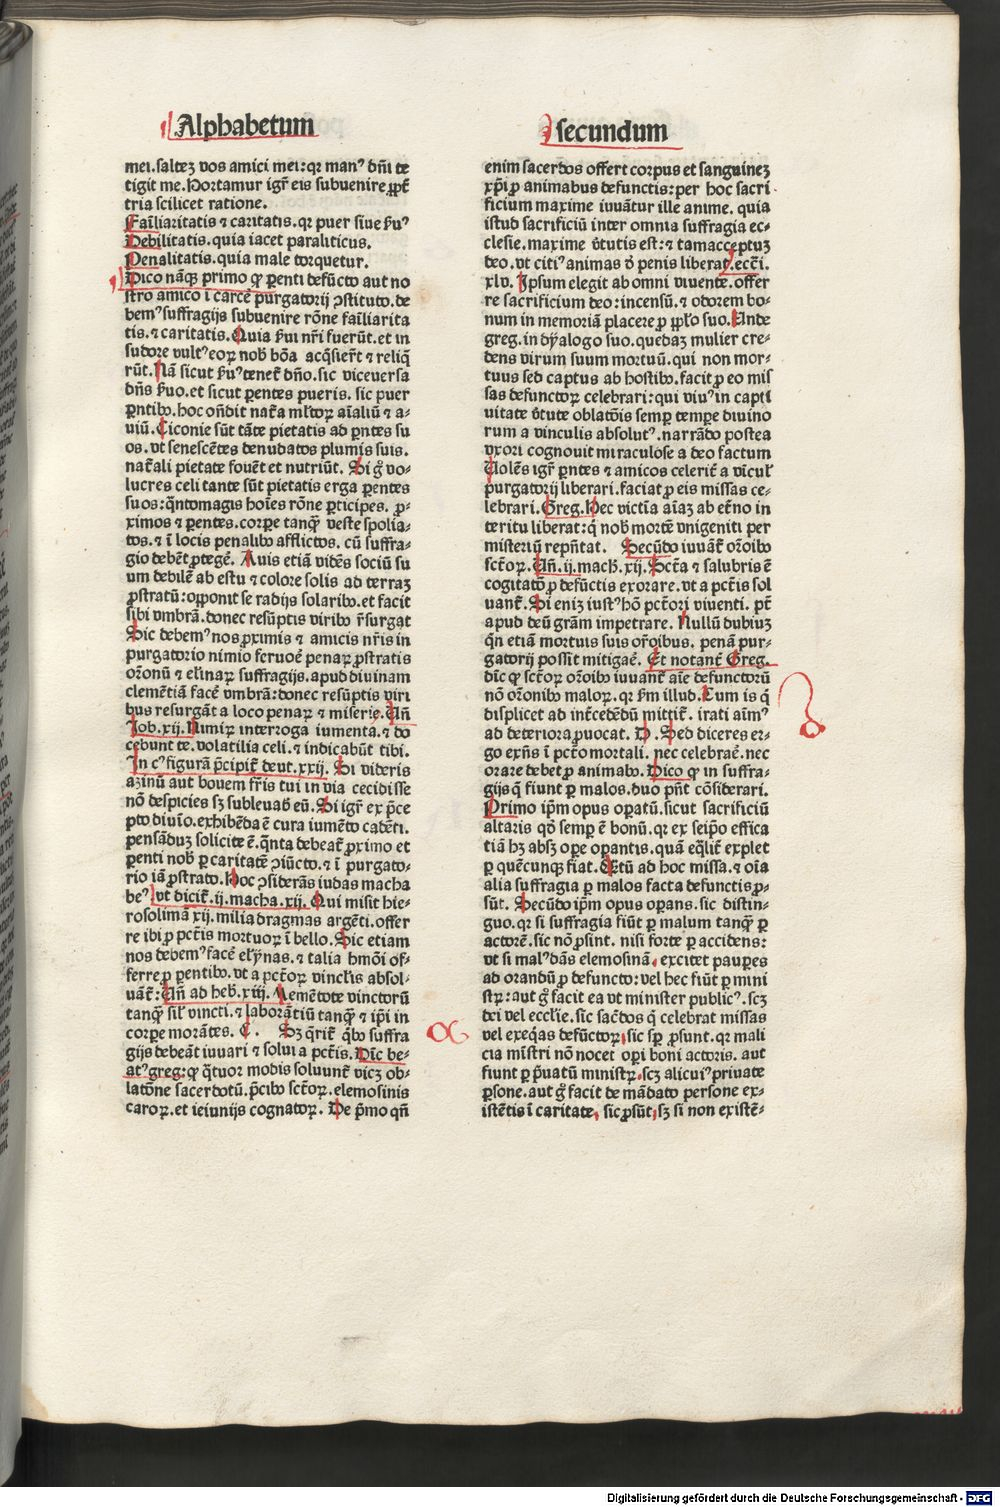 Alphabetum
mei.salteꝫ vos amici mei:qꝛ manꝰ dñi te
tigit me.Hortamur igr̃ eis subuenire ꝓpt̃
tria scilicet ratione.
Fail̃iaritatis ⁊ caritatis.qꝛ puer siue ẜuꝰ
Debilitatis.quia iacet paraliticus.
Penalitatis.quia male torquetur.
Dico nãqꝫ primo ꝙ ꝑenti defũcto aut no
stro amico ĩ carcẽ purgatorij ↄstituto.de
bemꝰ suffragijs subuenire rõne fail̃iarita
tis.⁊ caritatis.Quia ẜui nr̃i fuerũt.et in
sudore vultꝰ eoꝝ nob̃ bõa acq̃sier̃t ⁊ reliq̃
rũt.Nã sicut ẜuꝰ tenet̃ dño.sic viceuersa
dñs ẜuo.et sicut ꝑentes pueris. sic puer
ꝑntibꝰ.hoc oñdit nat̃a ml̃toꝝ aĩaliũ ⁊ a-
uiũ.Ciconie sũt tãte pietatis ad ꝑntes su
os.vt senescẽtes denudatos plumis suis.
nat̃ali pietate fouẽt et nutriũt. Si g̃ vo-
lucres celi tante sũt pietatis erga ꝑentes
suos:q̃ntomagis hoĩes rõne ꝑticipes. ꝓ-
ximos ⁊ ꝑentes.corꝑe tanqꝫ veste spolia-
tos.⁊ ĩ locis penalibꝰ afflictos. cũ suffra-
gio debẽt ꝓtegẽ. Auis etiã vidẽs sociũ su
um debilẽ ab estu ⁊ colore solis ad terraꝫ
ꝓstratũ:opponit se radijs solaribꝰ.et facit
sibi vmbrã.donec resũptis viribꝰ r̃surgat
Sic debemꝰ nos ꝓximis ⁊ amicis nr̃is in
purgatorio nimio feruoẽ penaꝝ ꝓstratis
or̃onũ ⁊ el̃inaꝝ suffragijs.apud diuinam
clemẽtiã facẽ vmbrã:donec resũptis viri
bus resurgãt a loco penaꝝ ⁊ miserie.Uñ
Iob.xij.Nimiꝝ interroga iumenta.⁊ do
cebunt te.volatilia celi.⁊ indicabũt tibi.
In cꝰ figurã p̃cipit̃ deut.xxij. Si videris
azinũ aut bouem fr̃is tui in via cecidisse
nõ despicies sꝫ subleuab̃ eũ.Si igr̃ ex p̃ce
pto diuĩo.exhibẽda ẽ cura iumẽto cadẽti.
pensãduꝫ solicite ẽ.q̃nta debeat̃ ꝓximo et
ꝑenti nob̃ ꝑ caritatẽ ↄiũcto.⁊ ĩ purgato-
rio iã ꝓstrato.Hoc ↄsiderãs iudas macha
beꝰ vt dicit̃.ij.macha.xij.Qui misit hie-
rosolimã xij.milia dragmas argẽti.offer
re ibi ꝓ pct̃is mortuoꝝ ĩ bello.Sic etiam
nos debemꝰ facẽ elÿnas.⁊ talia hmõi of-
ferre ꝓ ꝑentibꝰ.vt a pct̃oꝝ vincl̃is absol-
uãt̃:Uñ ad heb̃.xiii.Memẽtote vinctorũ
tanqꝫ sil̃ vincti.⁊ laborãtiũ tanqꝫ ⁊ ip̃i in
corꝑe morãtes. C. Sꝫ q̃rit̃ q̃bꝰ suffra
gijs debeãt iuuari ⁊ solui a pct̃is.Dic̃ be-
atꝰ greg:ꝙ q̃tuor modis soluunt̃ vicꝫ ob-
latõne sacerdotũ.p̃cibꝰ sct̃oꝝ.elemosinis
caroꝝ.et ieiunijs cognatoꝝ. De p̃mo qñ
secundum
enim sacerdos offert corpus et sanguineꝫ
xp̃i ꝓ animabus defunctis:per hoc sacri
ficium maxime iuuãtur ille anime. quia
istud sacrificiũ inter omnia suffragia ec-
clesie.maxime v̾tutis est:⁊ tamacceptuꝫ
deo.vt citiꝰ animas d̾ penis liberat.ecci̾.
xlv. Ipsum elegit ab omni viuente.offer
re sacrificium deo:incensũ.⁊ odorem bo-
num in memoriã placere ꝓ pplõ suo.Unde
greg.in dÿalogo suo.quedaꝫ mulier cre-
dens virum suum mortuũ.qui non mor-
tuus sed captus ab hostibꝰ.facit ꝓ eo mis
sas defunctoꝝ celebrari:qui viuꝰ in capti
uitate v̾tute oblatõis semꝑ temꝑe diuino
rum a vinculis absolutꝰ.narrãdo postea
vxori cognouit miraculose a deo factum
Uolẽs igr̃ ꝑntes ⁊ amicos celerit̃ a vĩcul̃
purgatorij liberari.faciat ꝓ eis missas ce-
lebrari.Greg.Hec victĩa aĩaꝫ ab et̃no in
teritu liberat:q̃ nob̃ mortẽ vnigeniti per
misteriũ rep̃ntat. Secũdo iuuãt̃ or̃oibꝰ
sct̃oꝝ.Uñ.ij.mach.xij.Sct̃a ⁊ salubris ẽ
cogitatõ ꝓ defũctis exorare.vt a pct̃is sol
uant̃.Si eniꝫ iustꝰ hõ pct̃ori viuenti. pt̃
apud deũ gr̃am impetrare. Nullũ dubiuꝫ
q̃n etiã mortuis suis or̃oibus. penã pur-
gatorij possĩt mitigaẽ. Et notant̃ Greg.
dic̃ ꝙ sct̃oꝝ or̃oibꝰ iuuant̃ aĩe defunctorũ
nõ or̃onibꝰ maloꝝ.qꝛ ẜm illud.Cum is q̃
displicet ad int̃cedẽdũ mittit̃. irati aĩmꝰ
ad deteriora ꝓuocat. D. Sed diceres er-
go exñs ĩ pct̃o mortali. nec celebraẽ.nec
orare debet ꝓ animabꝰ.Dico ꝙ in suffra-
gijs q̃ fiunt ꝑ malos.duo pñt cõsiderari.
Primo ip̃m opus opatũ.sicut sacrificiũ
altaris qd̾ semꝑ ẽ bonũ.qꝛ ex seip̃o effica
tiã hꝫ absꝫ oꝑe oꝑantis.quã eq̃lit̃ explet
ꝑ quẽcunqꝫ fiat.Cetũ ad hoc missa.⁊ oĩa
alia suffragia ꝑ malos facta defunctis ꝓ-
sũt. Secũdo ip̃m opus oꝑans.sic distin-
guo.qꝛ si suffragia fiũt ꝑ malum tanqꝫ ꝑ
actorẽ.sic nõ ꝓsint. nisi forte ꝑ accidens:
vt si malꝰ dãs elemosinã.excitet pauꝑes
ad orandũ ꝓ defuncto:vel hec fiũt ꝑ mini
stꝝ:aut g̃ facit ea vt minister publicꝰ.scꝫ
dei vel eccl̃ie.sic sac̾dos q̃ celebrat missas
vel exeq̃as defũctoꝝ.sic sꝑ ꝓsunt.qꝛ mali
cia mĩstri nõ nocet oꝑi boni actoris. aut
fiunt ꝑ p̃uatũ ministꝝ.scꝫ alicuiꝰ priuate
ꝑsone.aut g̃ facit de mãdato persone ex-
istẽtis ĩ caritate.sic ꝓsũt:sꝫ si non existẽ-
Digitalisierung gefördert durch die Deutsche Forschungsgemeinschaft - DFG